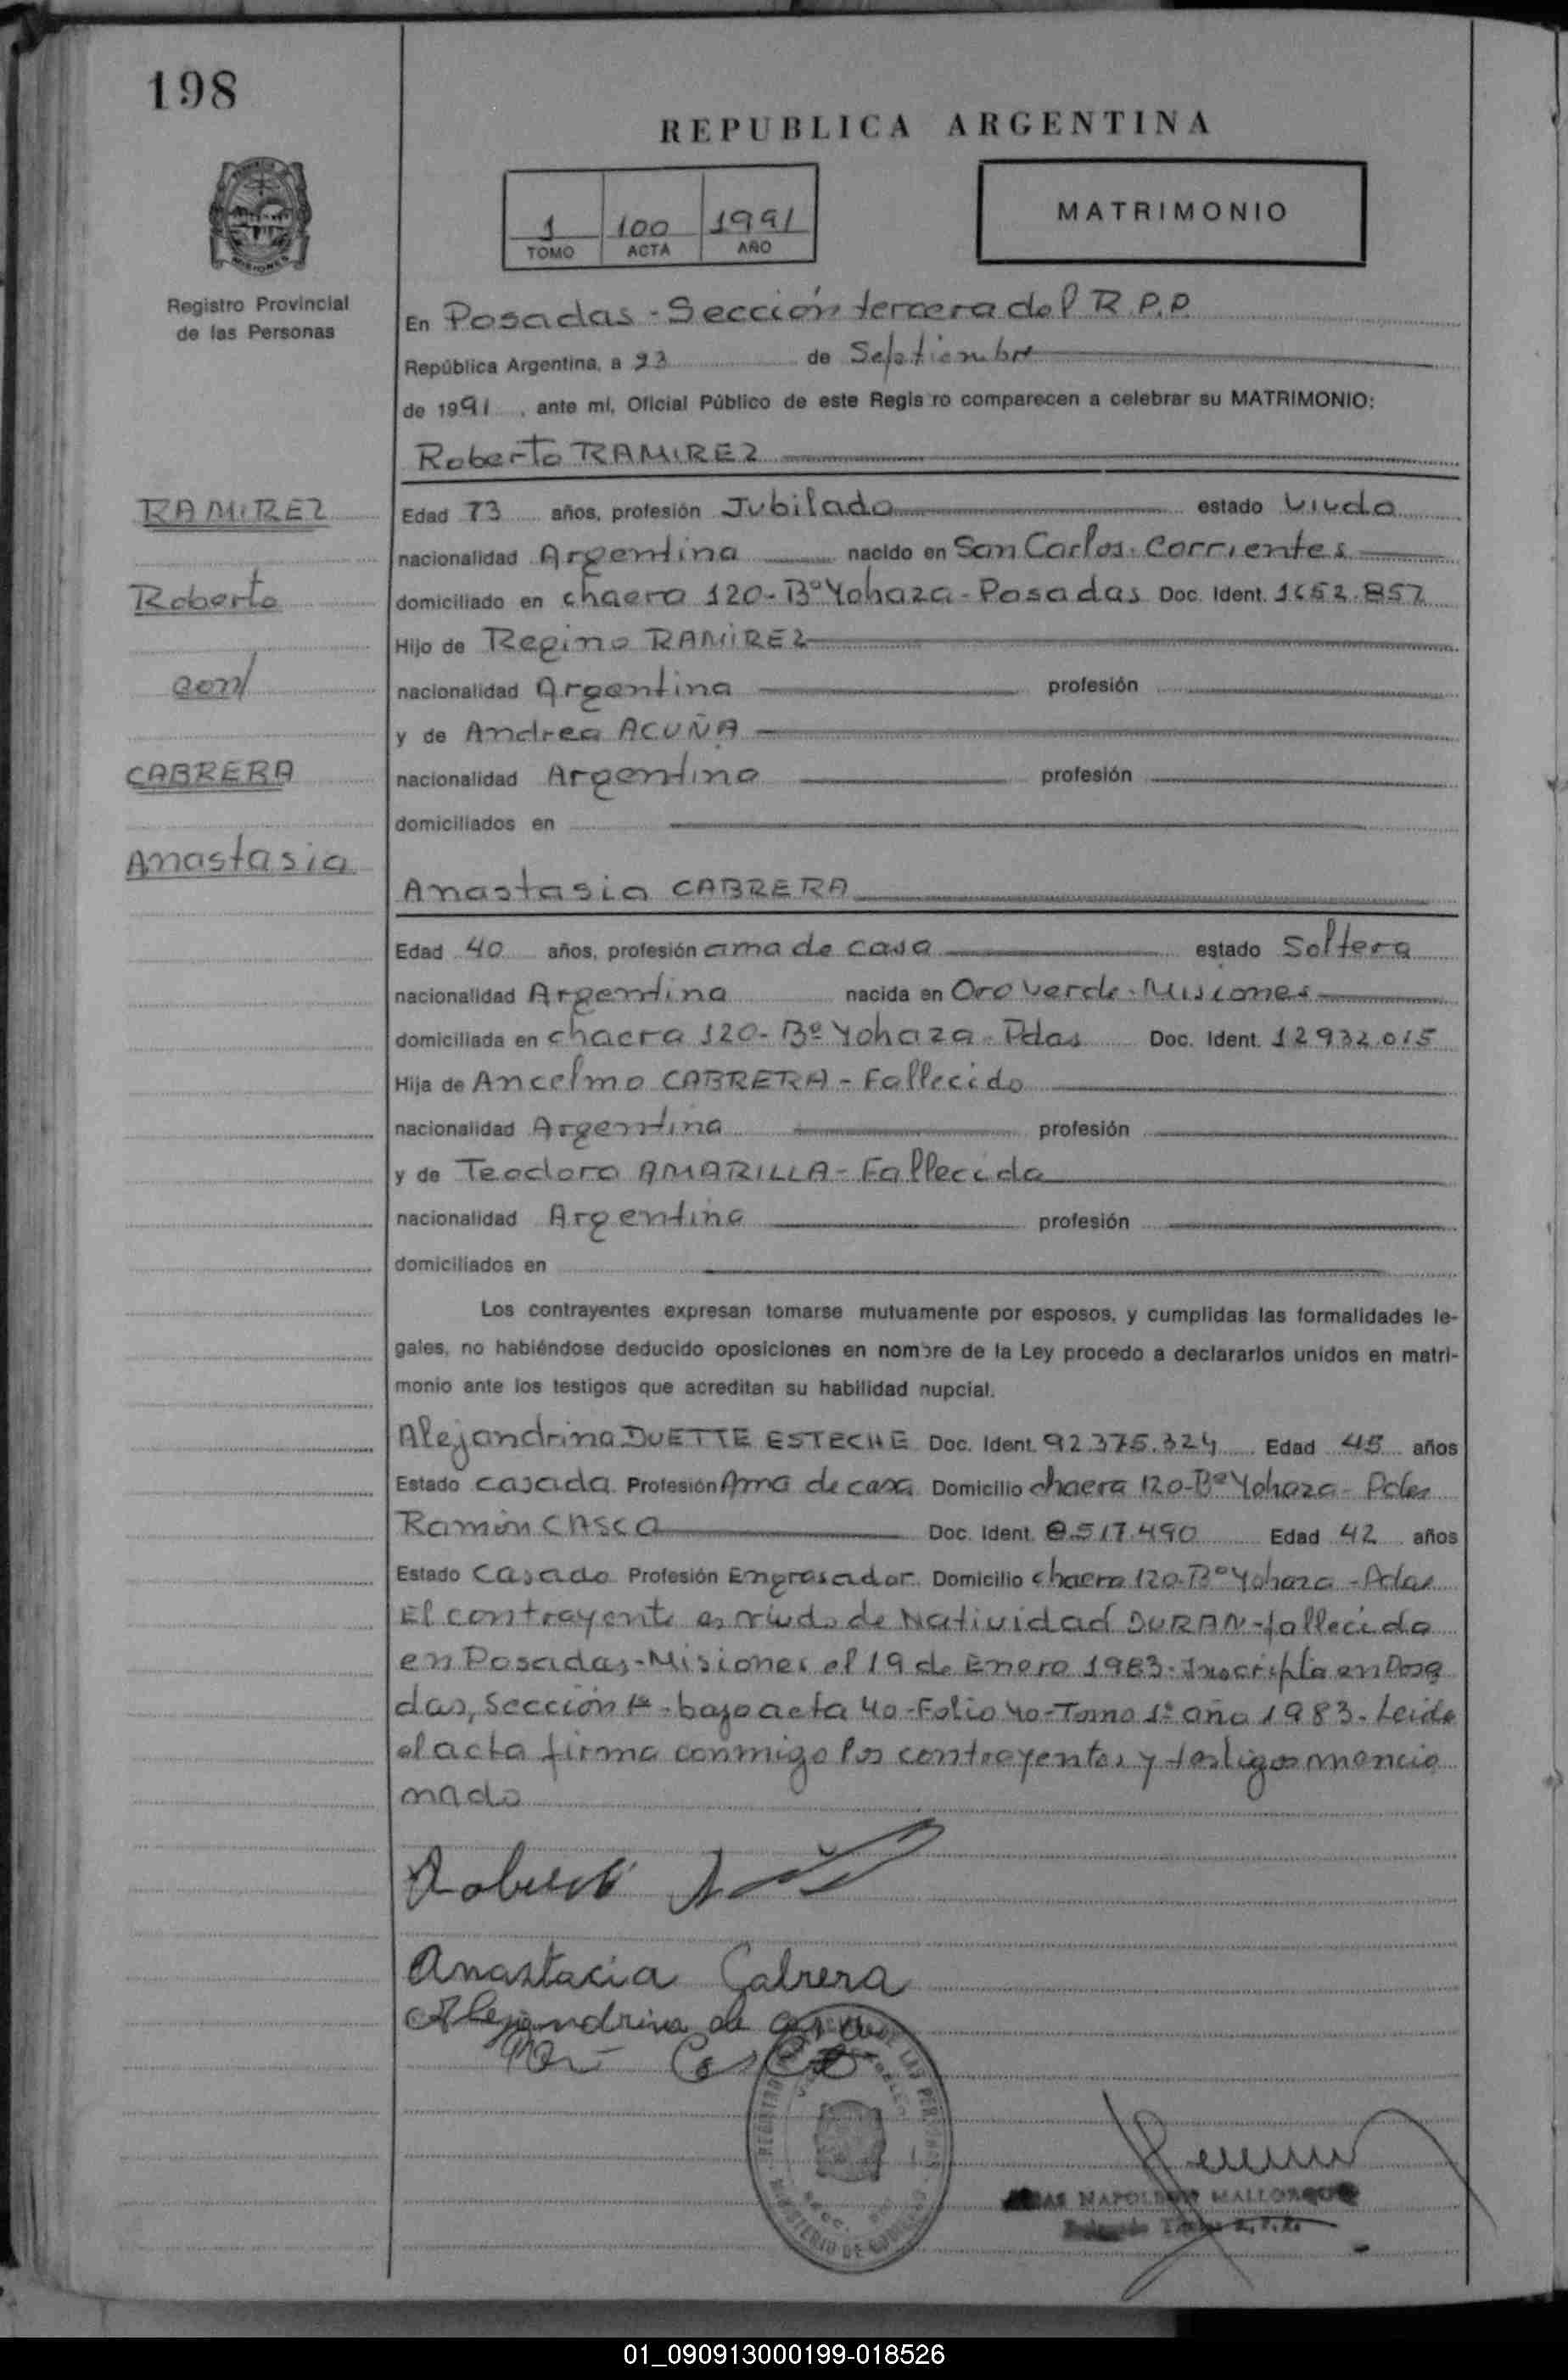 198
REPUBLICA ARGENTINA
1 100 1991
TOMO ACTA AÑO
MATRIMONIO
MISIONES
Registro Provincial
de las Personas
En Posadas - Sección tercera del R.P.P.
República Argentina, a 23 de Septiembre
de 1991, ante mí, Oficial Público de este Regis ro comparecen a celebrar su MATRIMONIO:
Roberto RAMIREZ
RAMIREZ
Roberto
con/
CABRERA
Anastasia
Edad 73 años, profesión Jubilado estado Viudo
nacionalidad Argentina nacido en San Carlos - Corrientes
domiciliado en chacra 120 - Bº Yohaza - Posadas Doc. Ident. 1652.857
Hijo de Regino RAMIREZ
nacionalidad Argentina profesión
y de Andrea ACUÑA
nacionalidad Argentina profesión
domiciliados en
Anastasia CABRERA
Edad 40 años, profesión ama de casa estado Soltera
nacionalidad Argentina nacida en Oro Verde - Misiones
domiciliada en chacra 120 - Bº Yohaza - Pdas Doc. Ident. 12932.015
Hija de Ancelmo CABRERA - Fallecido
nacionalidad Argentina profesión
y de Teodora AMARILLA - Fallecida
nacionalidad Argentina profesión
domiciliados en
Los contrayentes expresan tomarse mutuamente por esposos, y cumplidas las formalidades le-
gales, no habiéndose deducido oposiciones en nombre de la Ley procedo a declararlos unidos en matri-
monio ante los testigos que acreditan su habilidad nupcial.
Alejandrina DUETTE ESTECHE Doc. Ident. 92.375.324 Edad 45 años
Estado casada Profesión Ama de casa Domicilio chacra 120 - Bº Yohaza - Pdas
Ramón CASCO Doc. Ident. 8.517.490 Edad 42 años
Estado Casado Profesión Engrasador Domicilio chacra 120 - Bº Yohaza - Pdas
El contrayente es viudo de Natividad DURAN - fallecida
en Posadas - Misiones el 19 de Enero 1983 - Inscripta en Posa
das, Sección 1ª - bajo acta 40 - Folio 40 - Tomo 1º año 1983. Leida
el acta firma conmigo los contrayentes y testigos mencio
nado
Roberto
Anastacia Cabrera
Alejandrina de
Casco
NAPOLEON
01_090913000199-018526